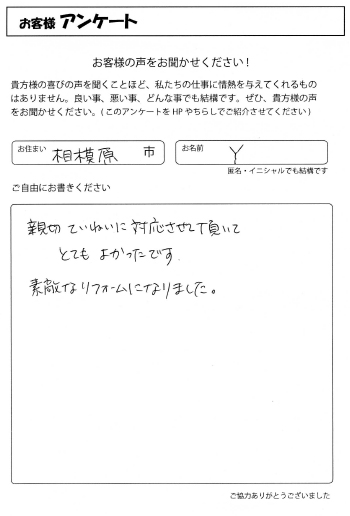 お客様 アンケート
お客様の声をお聞かせください！
貴方様の喜びの声を聞くことほど、私たちの仕事に情熱を与えてくれるもの
はありません。良い事、悪い事、どんな事でも結構です。ぜひ、貴方様の声
をお聞かせください。(このアンケートをHPやちらしでご紹介させてください)
お住まい 相模原 市 お名前 Y
匿名・イニシャルでも結構です
ご自由にお書きください
親切 ていねいに対応させて頂いて
とても よかったです.
素敵なリフォームになりました。
ご協力ありがとうございました